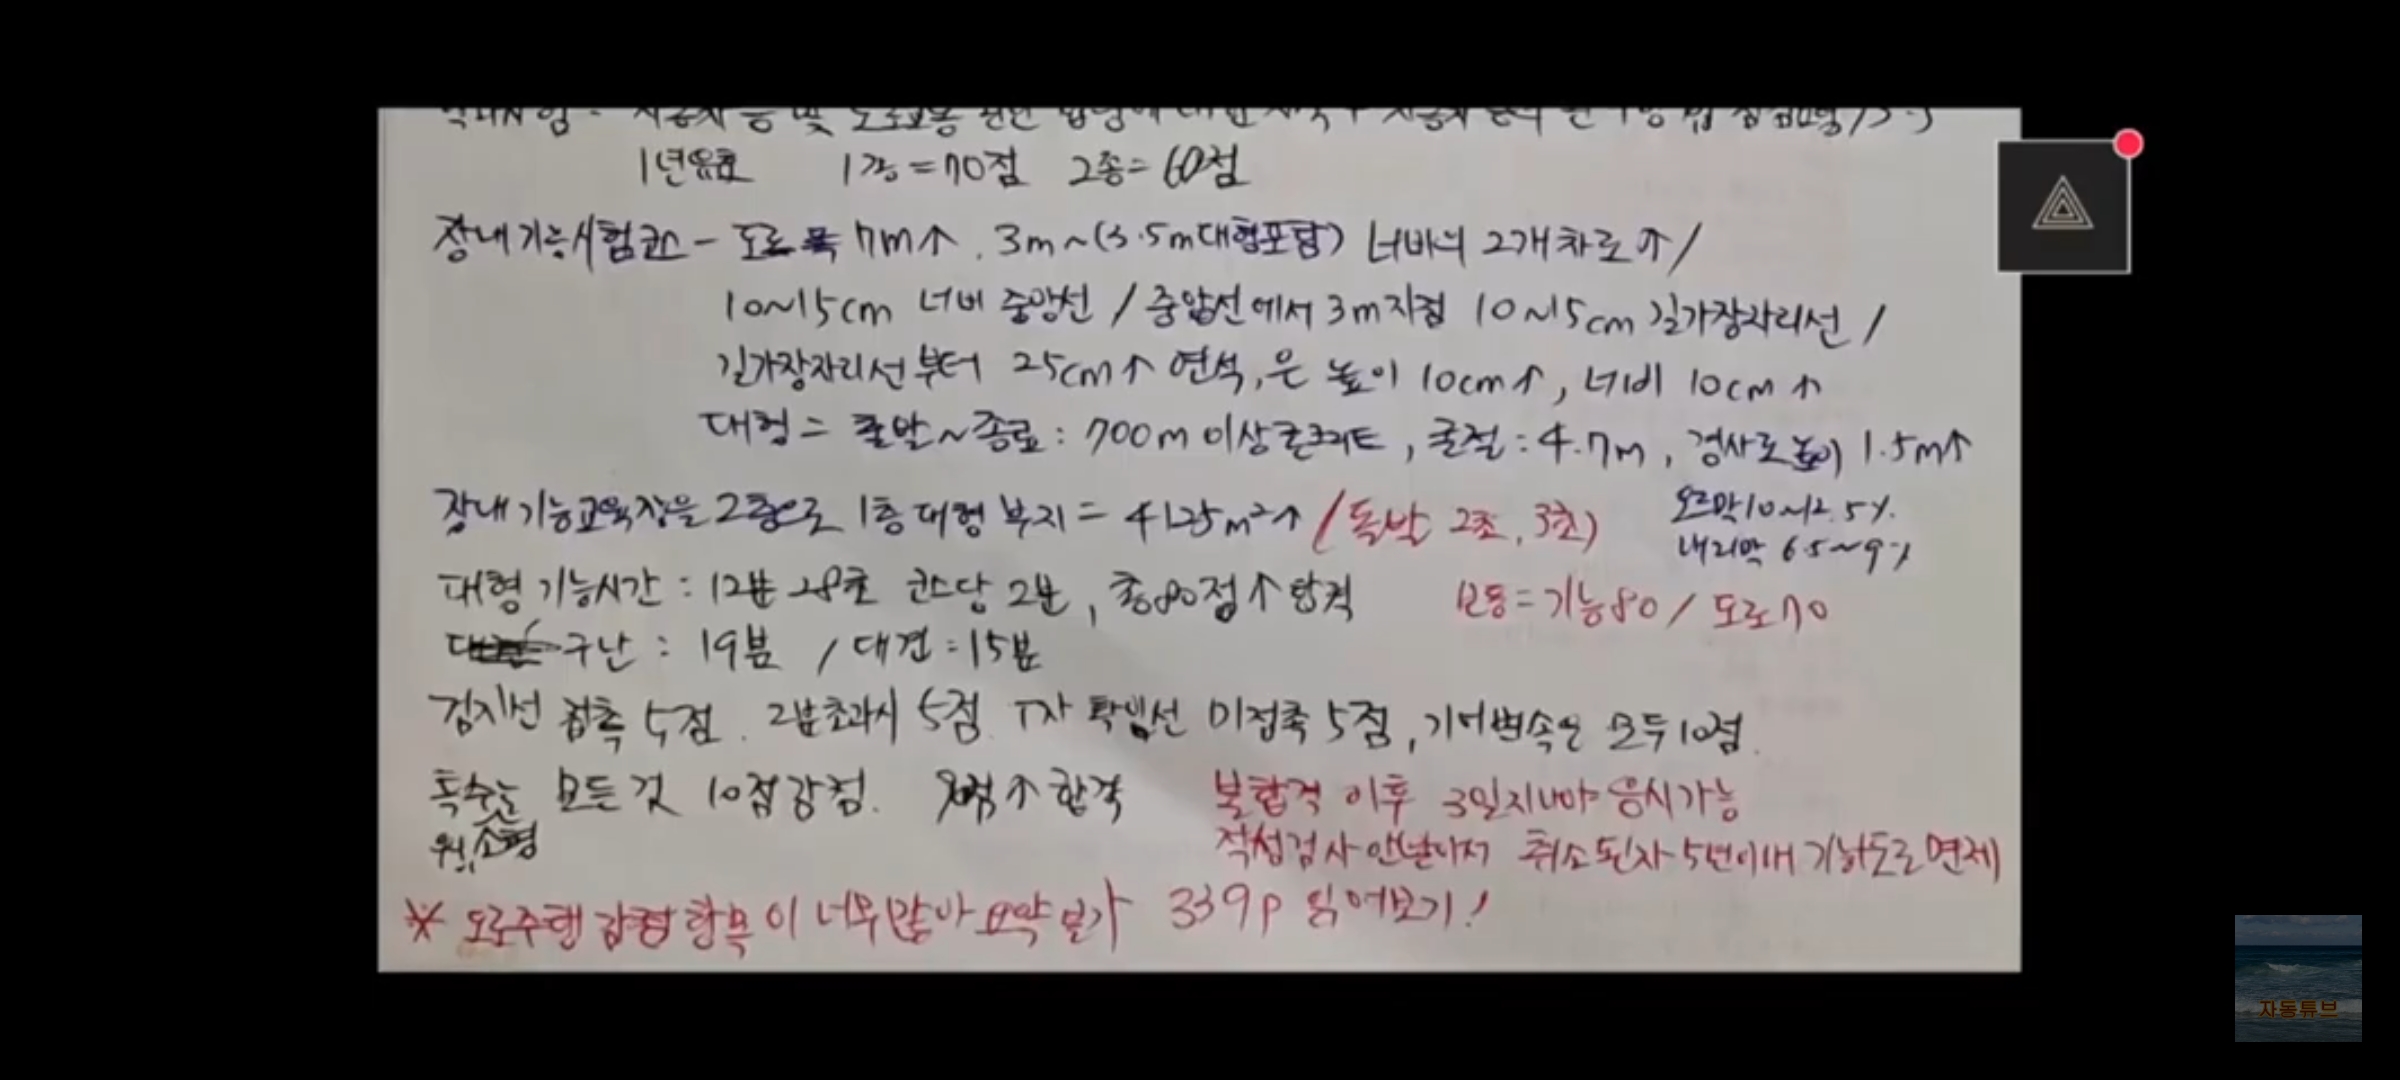 학과시험 - 자동차 등 및 도로교통 관한 법령에 대한 지식
1년유효 1종=70점 2종=60점
장내기능시험코스 - 도로폭 7m↑. 3m~(3.5m대형포함) 너비의 2개차로↑/
10~15cm 너비 중앙선 / 중앙선에서 3m지점 10~15cm 길가장자리선 /
길가장자리선부터 25cm↑ 연석,은 높이 10cm↑, 너비 10cm↑
대형 = 출발~종료: 700m 이상콘크리트, 굴절: 4.7m, 경사로높이 1.5m↑
장내기능교육장을 2층으로 1층 대형 부지 = 4125m²↑ (돌발 2초, 3초) 오르막10~12.5%.
내리막 6.5~9%
대형 기능시간 : 12분 28초 코스당 2분, 총80점↑합격 보통=기능80 / 도로70
구난 : 19분 / 대견:15분
검지선 접촉 5점. 2분초과시 5점. T자 확인선 미접촉 5점, 기어변속은 모두10점.
특수는 모든 것 10점감점. 90점↑합격 불합격 이후 3일지나야 응시가능
원,소형 적성검사안받아서 취소된자 5년이내 기능도로면제
※ 도로주행 감점 항목이 너무많아 요약본가 339p 읽어보기!
자동튜브